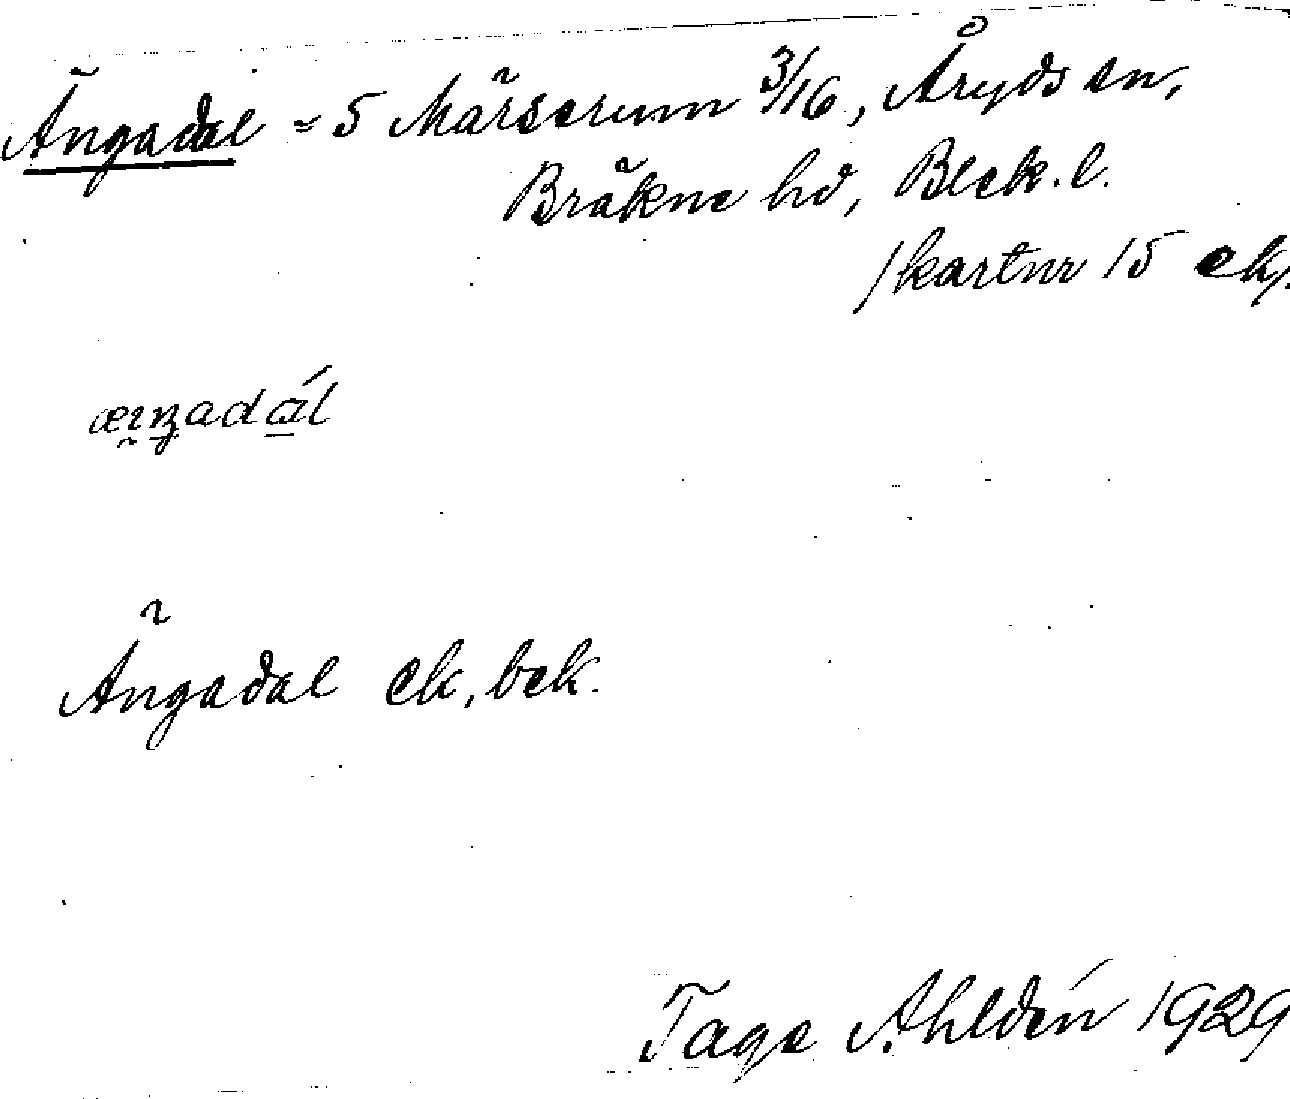 Ängadal = 5 Märserum 3/16, Åryds sn,
Bräkne hd, Blek. l.
/kartnr 15 ek/.
Ängadal ek, bek.
Tage Ahldén 1929